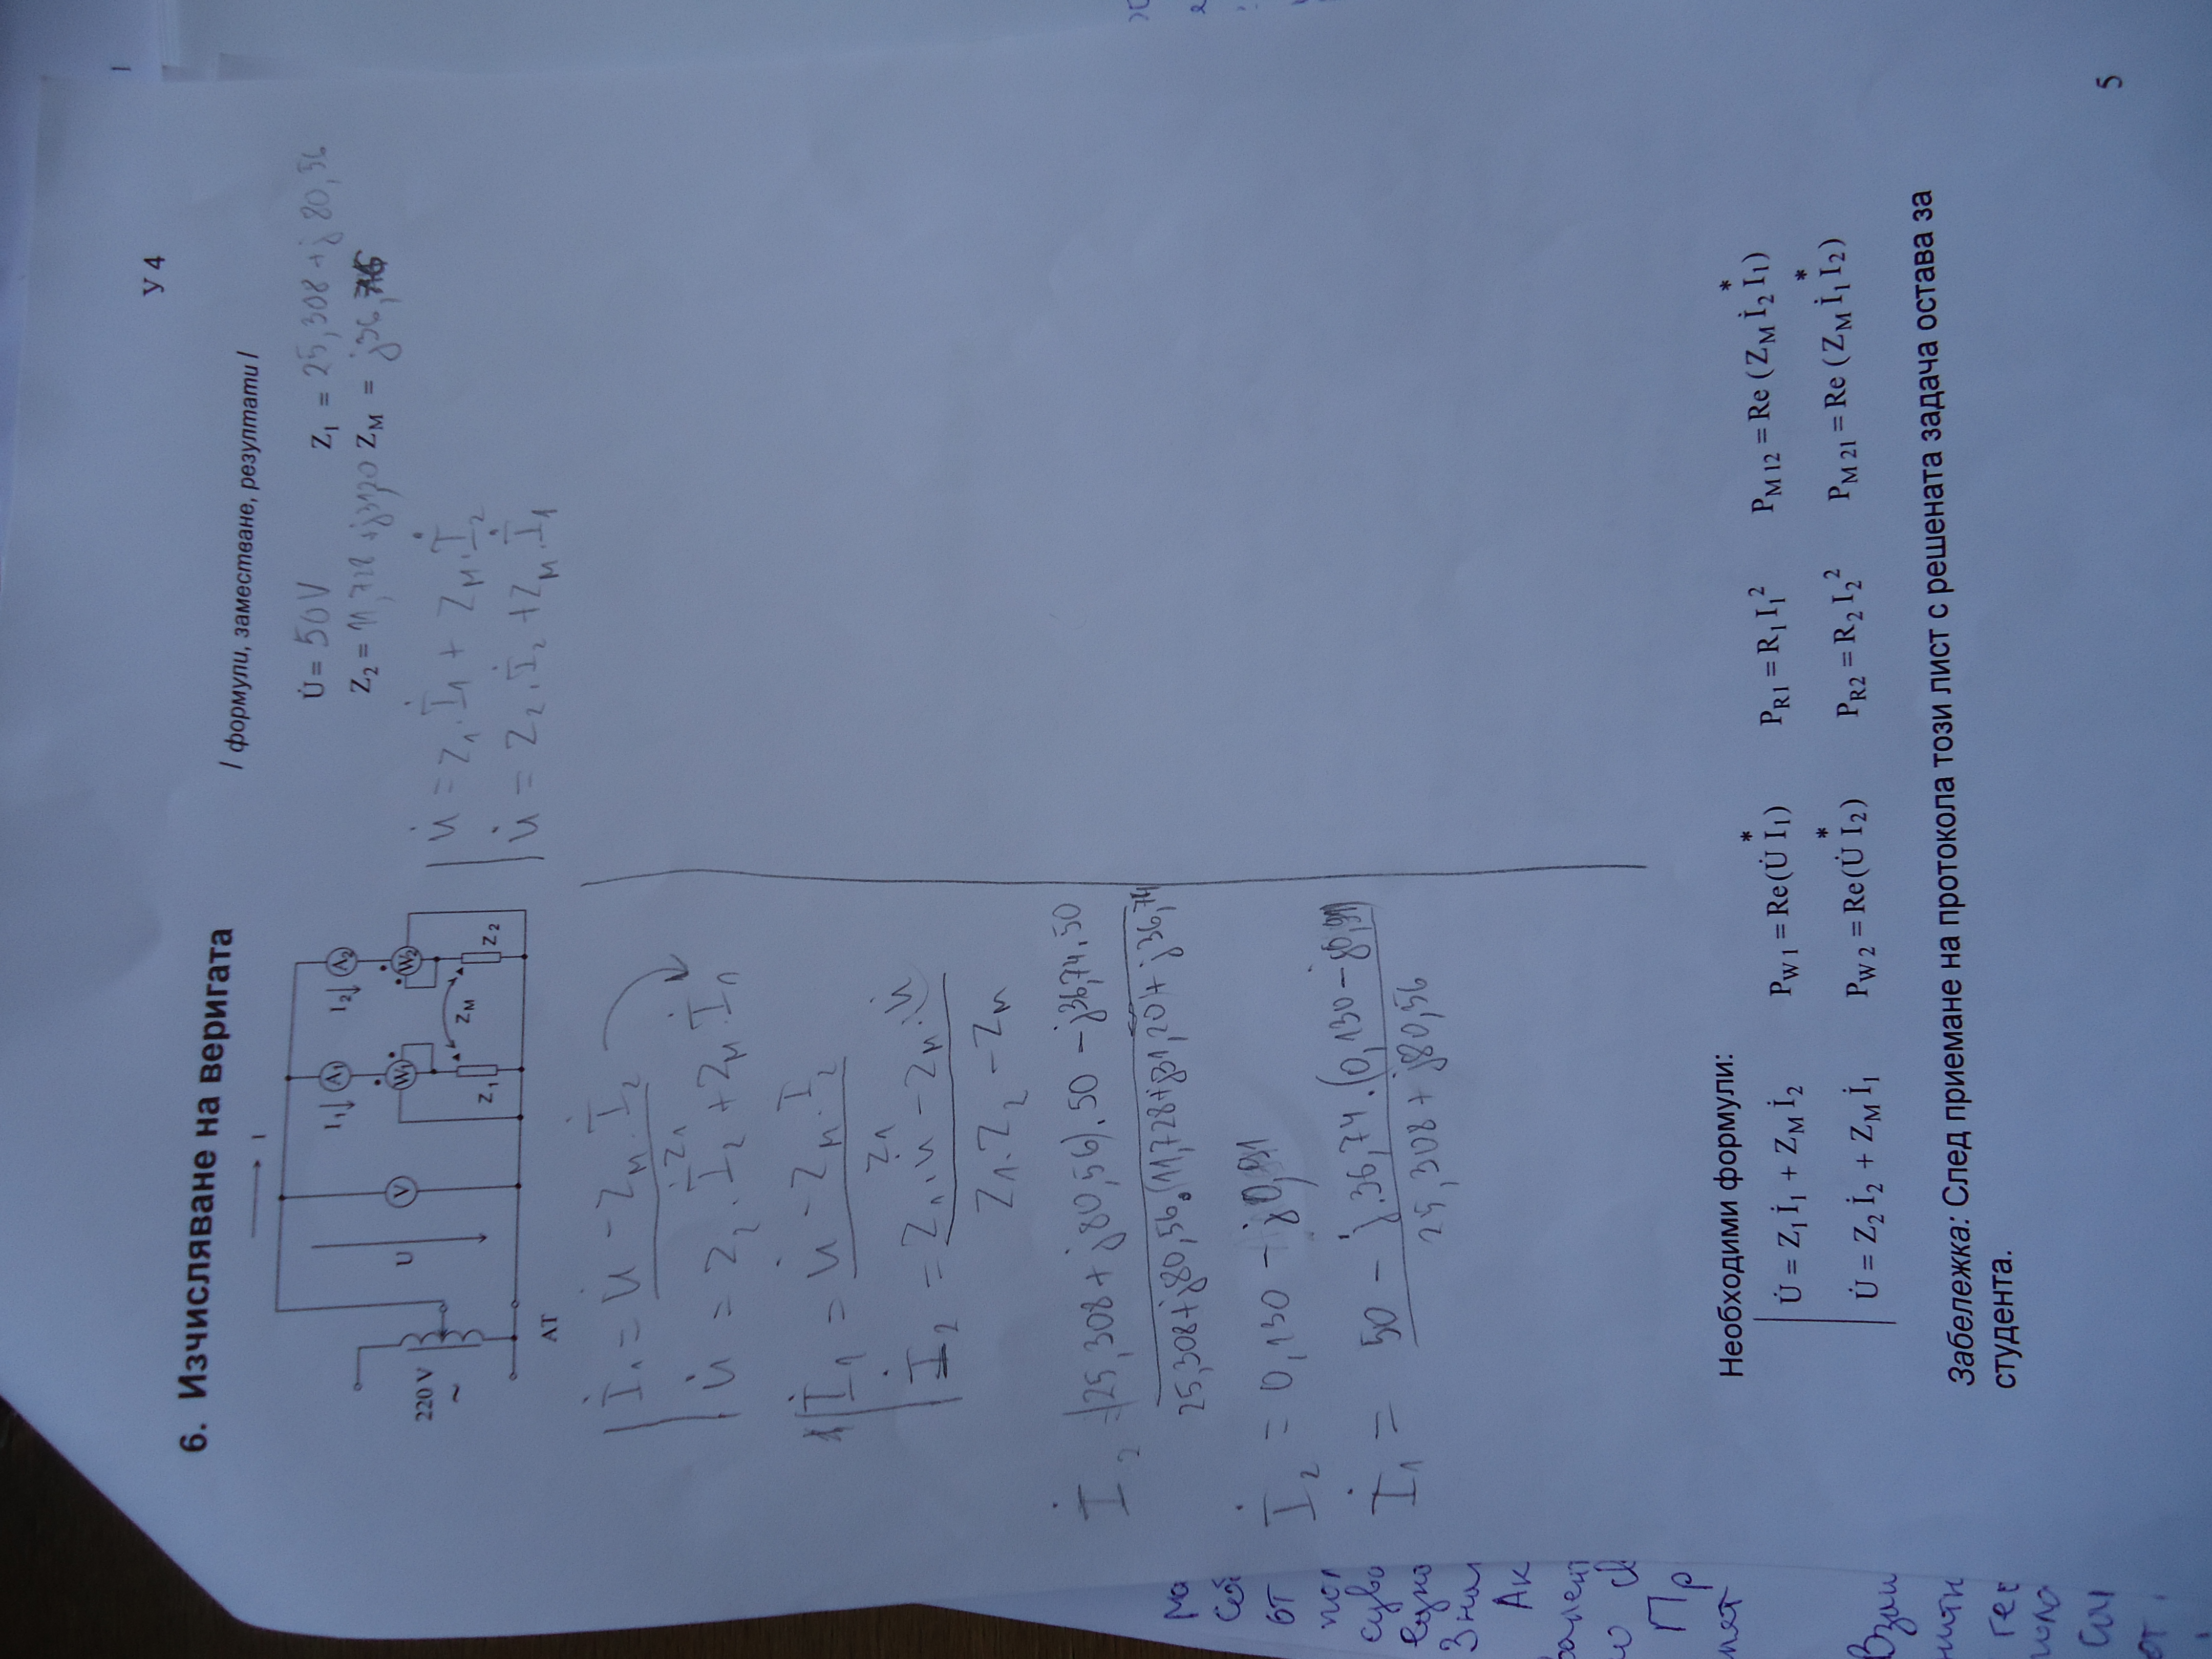 У 4
6. Изчисляване на веригата
/ формули, заместване, резултати /
I
220 V
~
АТ
U
V
I₁↓
A₁
W₁
Z₁
Z_M
I₂↓
A₂
W₂
Z₂
U̇ = 50V Z₁ = 25,308 + j 80,56
Z₂ = 11,728 + j31,20 Z_M = j36,74
U̇ = Z₁.İ₁ + Z_M.İ₂
U̇ = Z₂.İ₂ + Z_M.İ₁
İ₁ = U̇ - Z_M.İ₂ / Z₁
U̇ = Z₂.İ₂ + Z_M.İ₁
İ₁ = U̇ - Z_M.İ₂ / Z₁
İ₂ = Z₁.U̇ - Z_M.U̇ / Z₁.Z₂ - Z_M
İ₂ = (25,308 + j80,56).50 - j36,74.50
25,308+j80,56.(11,728+j31,20)+j36,74
İ₂ = 0,130 - j0,911
İ₁ = 50 - j.36,74.(0,130 - j0,911)
25,308 + j80,56
Необходими формули:
U̇ = Z₁İ₁ + Z_M İ₂ P_W1 = Re(U̇ I₁*) P_R1 = R₁I₁² P_M12 = Re (Z_M İ₂ I₁*)
U̇ = Z₂İ₂ + Z_M İ₁ P_W2 = Re(U̇ I₂*) P_R2 = R₂I₂² P_M21 = Re (Z_M İ₁ I₂*)
Забележка: След приемане на протокола този лист с решената задача остава за
студента.
5
от
Ак
Пр